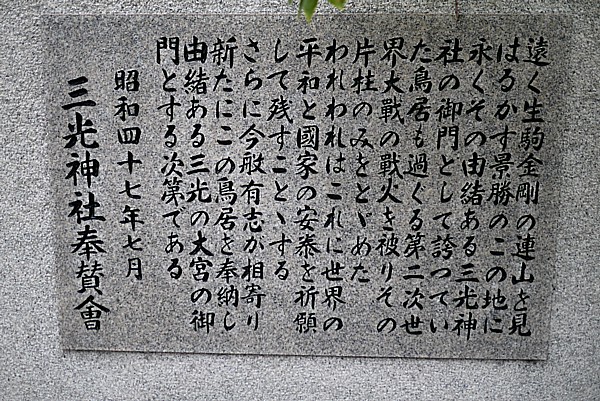 遠く生駒金剛の連山を見
はるかす景勝のこの地に
永くその由緒ある三光神
社の御門として誇つてい
た鳥居も過ぐる第二次世
界大戦の戦火を被りその
片柱のみをとゞめた
われわれはこれに世界の
平和と國家の安泰を祈願
して残すことゝする
さらに今般有志が相寄り
新たにこの鳥居を奉納し
由緒ある三光の大宮の御
門とする次第である
昭和四十七年七月
三光神社奉賛會